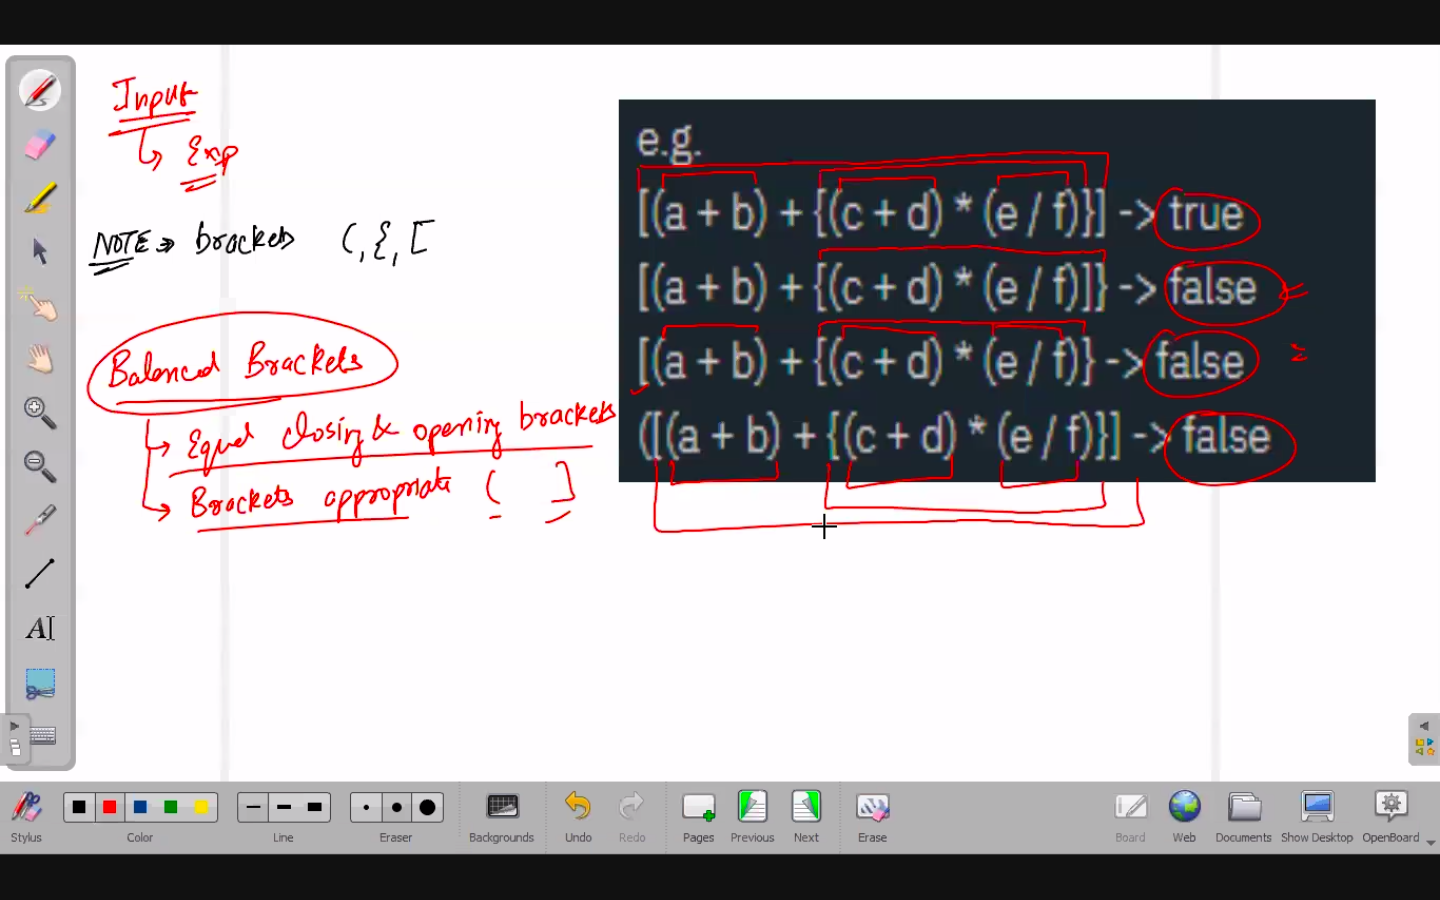 Input
Exp
NOTE => brackets (, {, [
Balanced Brackets
Equal closing & opening brackets
Brackets appropriate ( ]
e.g.
[(a + b) + {(c + d) * (e / f)}] -> true
[(a + b) + {(c + d) * (e / f)]} -> false
[(a + b) + {(c + d) * (e / f)} -> false
([(a + b) + {(c + d) * (e / f)}] -> false
AI
Stylus
Color
Line
Eraser
Backgrounds
Undo
Redo
Pages
Previous
Next
Erase
Board
Web
Documents
Show Desktop
OpenBoard